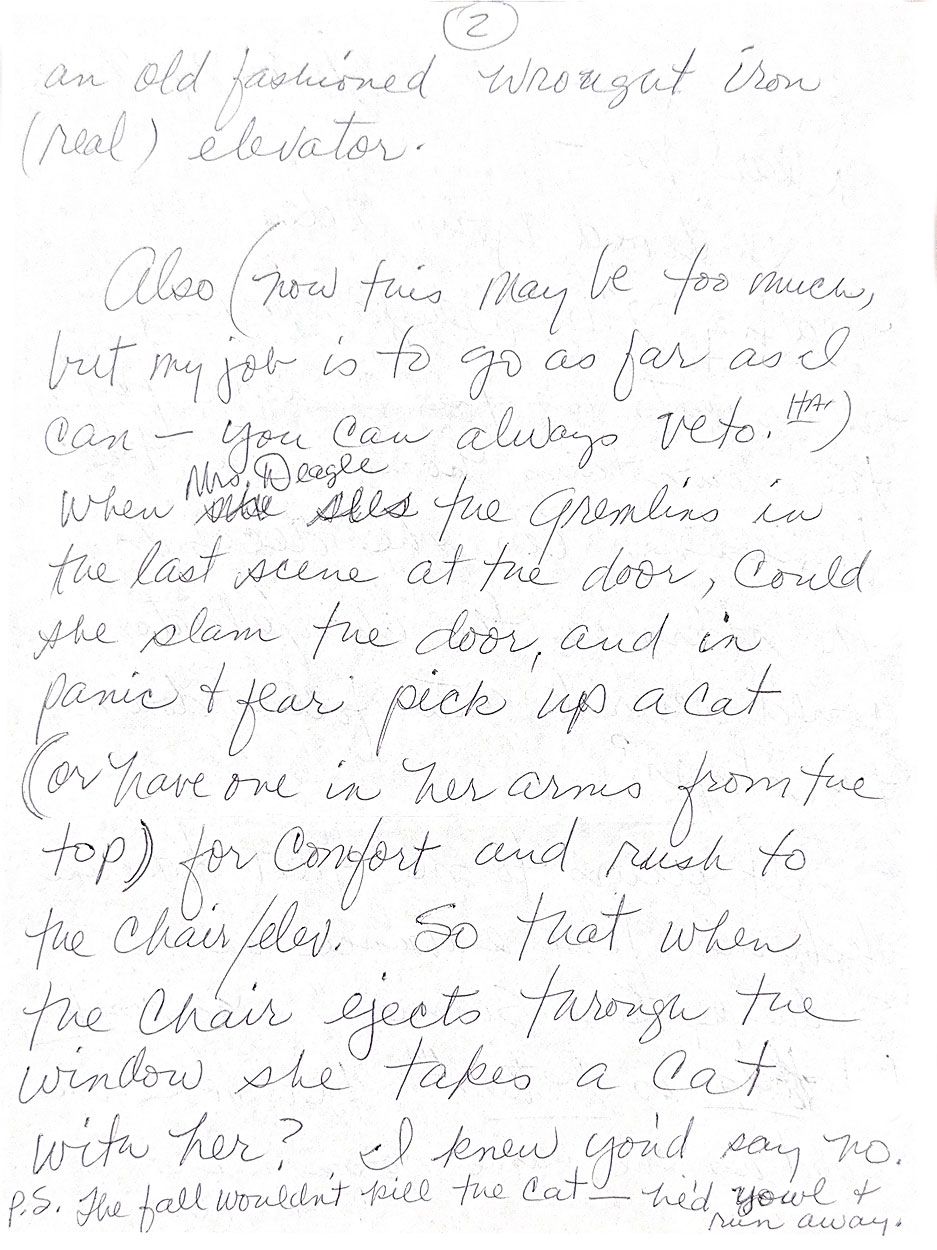 2
an old fashioned wrought iron
(real) elevator.
Also (now this may be too much,
but my job is to go as far as I
can — you can always veto. HA!)
Mrs. Deagle
When she sees the gremlins in
the last scene at the door, could
she slam the door, and in
panic & fear pick up a cat
(or have one in her arms from the
top) for comfort and rush to
the chair/elev. So that when
the chair ejects through the
window she takes a cat
with her? I knew you'd say no.
P.S. The fall wouldn't kill the cat — he'd yowl &
run away.